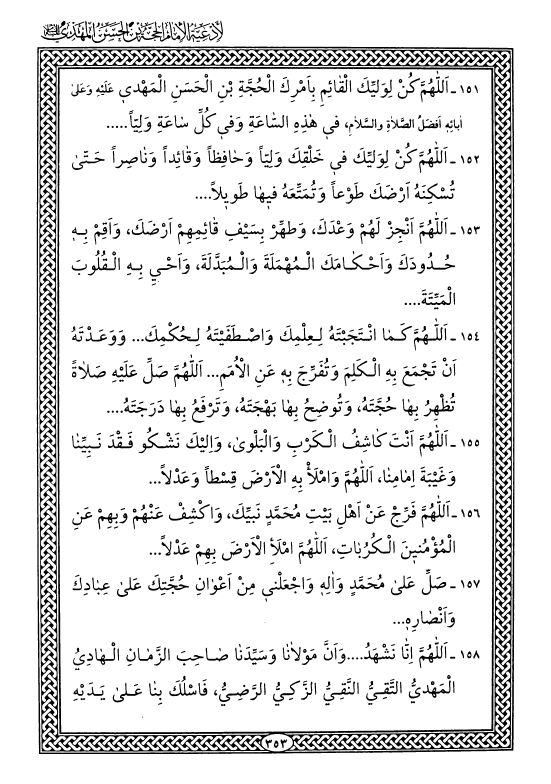 لأدعية الإمام الحجة بن الحسن المهدي
١٥١ـ اَللّٰهُمَّ كُنْ لِوَلِيِّكَ الْقٰائِمِ بِاَمْرِكَ الْحُجَّةِ بْنِ الْحَسَنِ الْمَهْدي عَلَيْهِ وَعَلىٰ
اٰبائِهِ اَفضَلُ الصَّلاٰةِ والسَّلاٰمِ، في هٰذِهِ السّٰاعَةِ وَفي كُلِّ سٰاعَةٍ وَلِيّاً.....
١٥٢ـ اَللّٰهُمَّ كُنْ لِوَلِيِّكَ في خَلْقِكَ وَلِيّاً وَحٰافِظاً وَقٰائِداً وَنٰاصِراً حَتّىٰ
تُسْكِنَهُ اَرْضَكَ طَوْعاً وَتُمَتِّعَهُ فيهٰا طَويلاً....
١٥٣ـ اَللّٰهُمَّ اَنْجِزْ لَهُمْ وَعْدَكَ، وَطَهِّرْ بِسَيْفِ قٰائِمِهِمْ اَرْضَكَ، وَاَقِمْ بِهِ
حُدُودَكَ وَاَحْكٰامَكَ الْمُهْمَلَةَ وَالْمُبَدَّلَةَ، وَاَحْيِ بِهِ الْقُلُوبَ
الْمَيِّتَةَ....
١٥٤ـ اَللّٰهُمَّ كَمٰا انْتَجَبْتَهُ لِعِلْمِكَ وَاصْطَفَيْتَهُ لِحُكْمِكَ... وَوَعَدْتَهُ
اَنْ تَجْمَعَ بِهِ الْكَلِمَ وَتُفَرِّجَ بِهِ عَنِ الْاُمَمِ... اَللّٰهُمَّ صَلِّ عَلَيْهِ صَلاٰةً
تُظْهِرُ بِهٰا حُجَّتَهُ، وَتُوضِحُ بِهٰا بَهْجَتَهُ، وَتَرْفَعُ بِهٰا دَرَجَتَهُ....
١٥٥ـ اَللّٰهُمَّ اَنْتَ كٰاشِفُ الْكَرْبِ وَالْبَلْوىٰ، وَاِلَيْكَ نَشْكُو فَقْدَ نَبِيِّنٰا
وَغَيْبَةَ اِمٰامِنٰا، اَللّٰهُمَّ وَامْلَأْ بِهِ الْاَرْضَ قِسْطاً وَعَدْلاً...
١٥٦ـ اَللّٰهُمَّ فَرِّجْ عَنْ اَهْلِ بَيْتِ مُحَمَّدٍ نَبِيِّكَ، وَاكْشِفْ عَنْهُمْ وَبِهِمْ عَنِ
الْمُؤْمِنينَ الْكُرُبٰاتِ، اَللّٰهُمَّ امْلَأِ الْاَرْضَ بِهِمْ عَدْلاً...
١٥٧ـ صَلِّ عَلىٰ مُحَمَّدٍ وَاٰلِهِ وَاجْعَلْني مِنْ اَعْوٰانِ حُجَّتِكَ عَلىٰ عِبٰادِكَ
وَاَنْصٰارِهِ...
١٥٨ـ اَللّٰهُمَّ اِنّٰا نَشْهَدُ....وَاَنَّ مَوْلاٰنٰا وَسَيِّدَنٰا صٰاحِبَ الزَّمٰانِ الْهٰادِيُ
الْمَهْدِيُّ التَّقِيُّ النَّقِيُّ الزَّكِيُّ الرَّضِيُّ، فَاسْلُكْ بِنٰا عَلىٰ يَدَيْهِ
٣٥٣